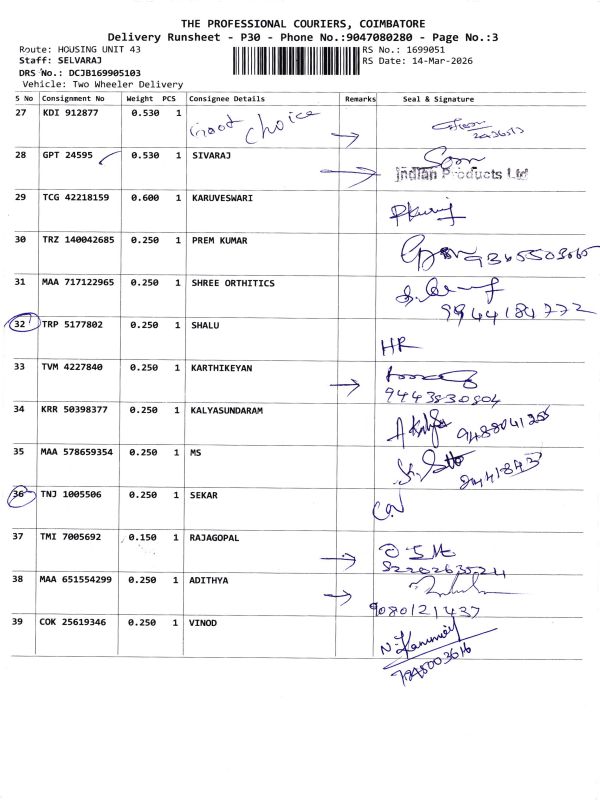 THE PROFESSIONAL COURIERS, COIMBATORE
Delivery Runsheet - P30 - Phone No.:9047080280 - Page No.:3
Route: HOUSING UNIT 43 RS No.: 1699051
Staff: SELVARAJ RS Date: 14-Mar-2026
DRS No.: DCJB169905103
Vehicle: Two Wheeler Delivery
S No Consignment No Weight PCS Consignee Details Remarks Seal & Signature
27 KDI 912877 0.530 1 Good Choice
28 GPT 24595 0.530 1 SIVARAJ
Indian Products Ltd
29 TCG 42218159 0.600 1 KARUVESWARI
30 TRZ 140042685 0.250 1 PREM KUMAR
31 MAA 717122965 0.250 1 SHREE ORTHITICS
9944184772
32 TRP 5177802 0.250 1 SHALU
HR
33 TVM 4227840 0.250 1 KARTHIKEYAN
9443830804
34 KRR 50398377 0.250 1 KALYASUNDARAM
9488041255
35 MAA 578659354 0.250 1 MS
36 TNJ 1005506 0.250 1 SEKAR
37 TMI 7005692 0.150 1 RAJAGOPAL
38 MAA 651554299 0.250 1 ADITHYA
9080121437
39 COK 25619346 0.250 1 VINOD